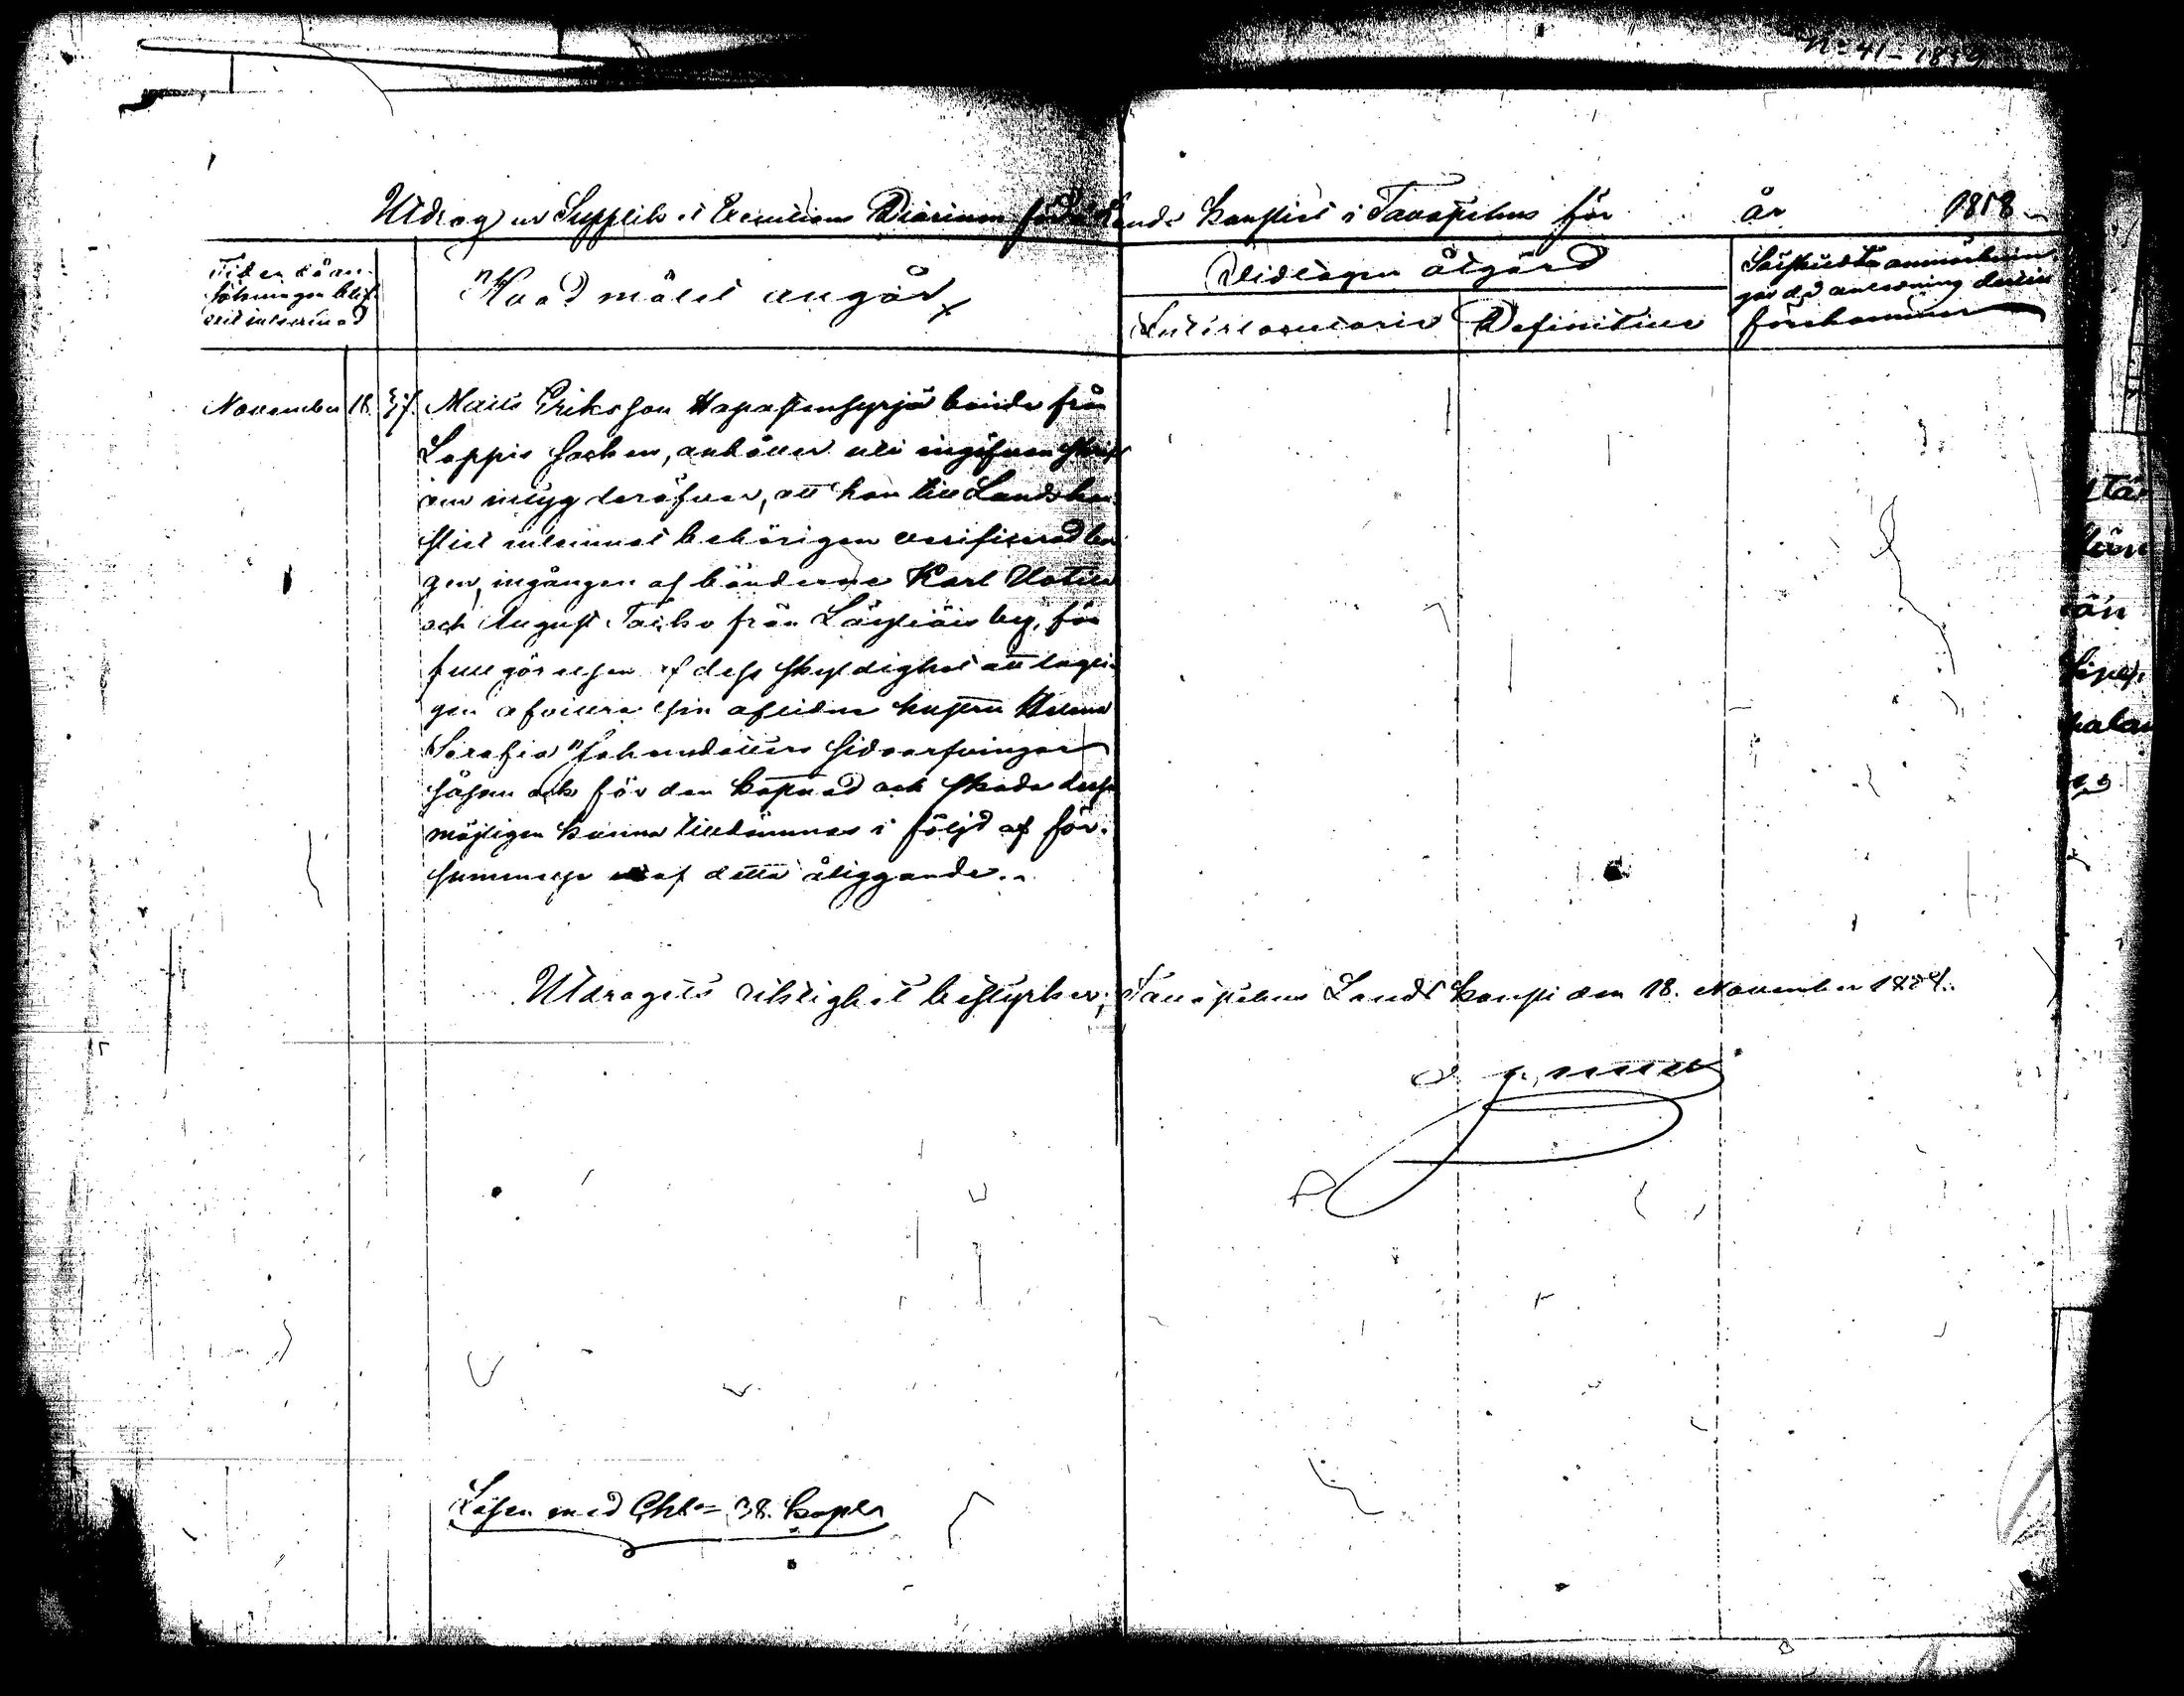 No 41 - 1859
Utdrag ur Supplik et Executions Diarium fördt Lands Kansliet i Tavastehus för år 1858
Tiden då an-
sökningen blif-
vit intecknad
Hvad målet angår
Vidtagen åtgärd
Interlocutorie Definitive
Särskildta anmärknin-
gar då anledning dertill
förekommer
November 18. 37. Matts Eriksson Haapastensyrjä bonde från
Loppis Socken, anhåller uti ingifven skrift
om intyg deröfver, att han till Landskan-
sliet inlemnat behörigen verificerad bor-
gen, ingången af bönderne Karl Uotila
och August Tacko från Läyliäis by, för
fullgörelsen af dess skyldighet att lagli-
gen afvittra sin aflidna hustru Helena
Serafia Johansdotters sidoarfvingar
såsom ock för den kostnad och skada desse
möjligen kunna tilldömmas i följd af för-
summelse af detta åliggande.
Utdragets riktighet bestyrker, Tavastehus Lands Kansli den 18. November 1858.
Lösen med Ch: 38. kopek